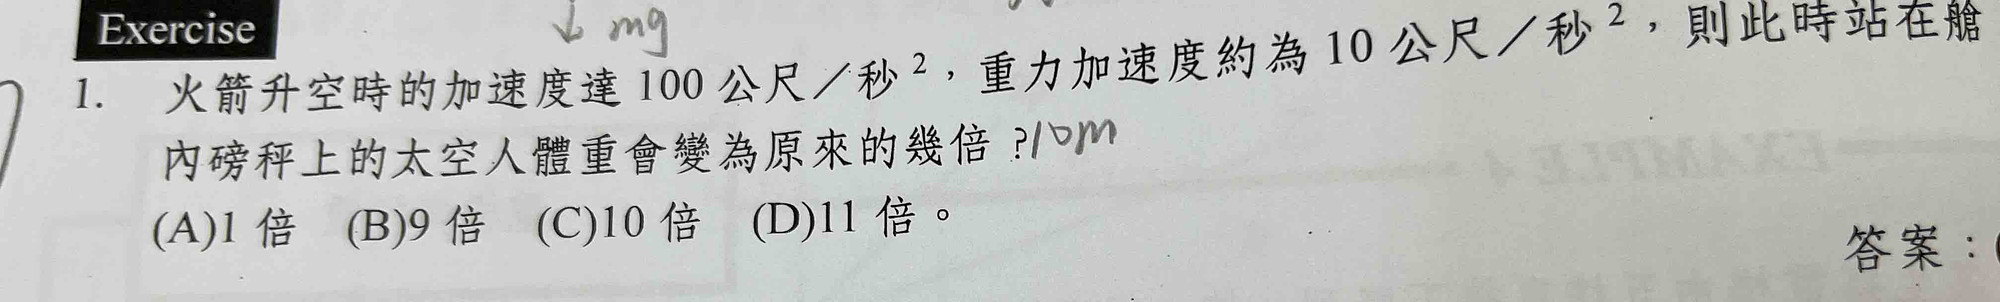 ↓ mg
Exercise
1. 火箭升空時的加速度達 100 公尺／秒²，重力加速度約為 10 公尺／秒²，則此時站在艙
內磅秤上的太空人體重會變為原來的幾倍？10m
(A)1 倍 (B)9 倍 (C)10 倍 (D)11 倍。
答案：(